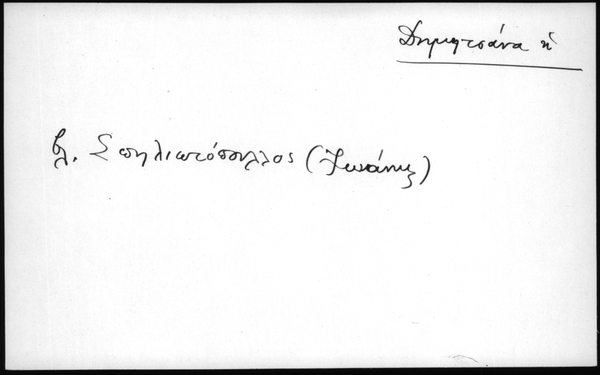 Δημητσάνα ἡ
βλ. Σπηλιωτόπουλος (Ἰωάννης)